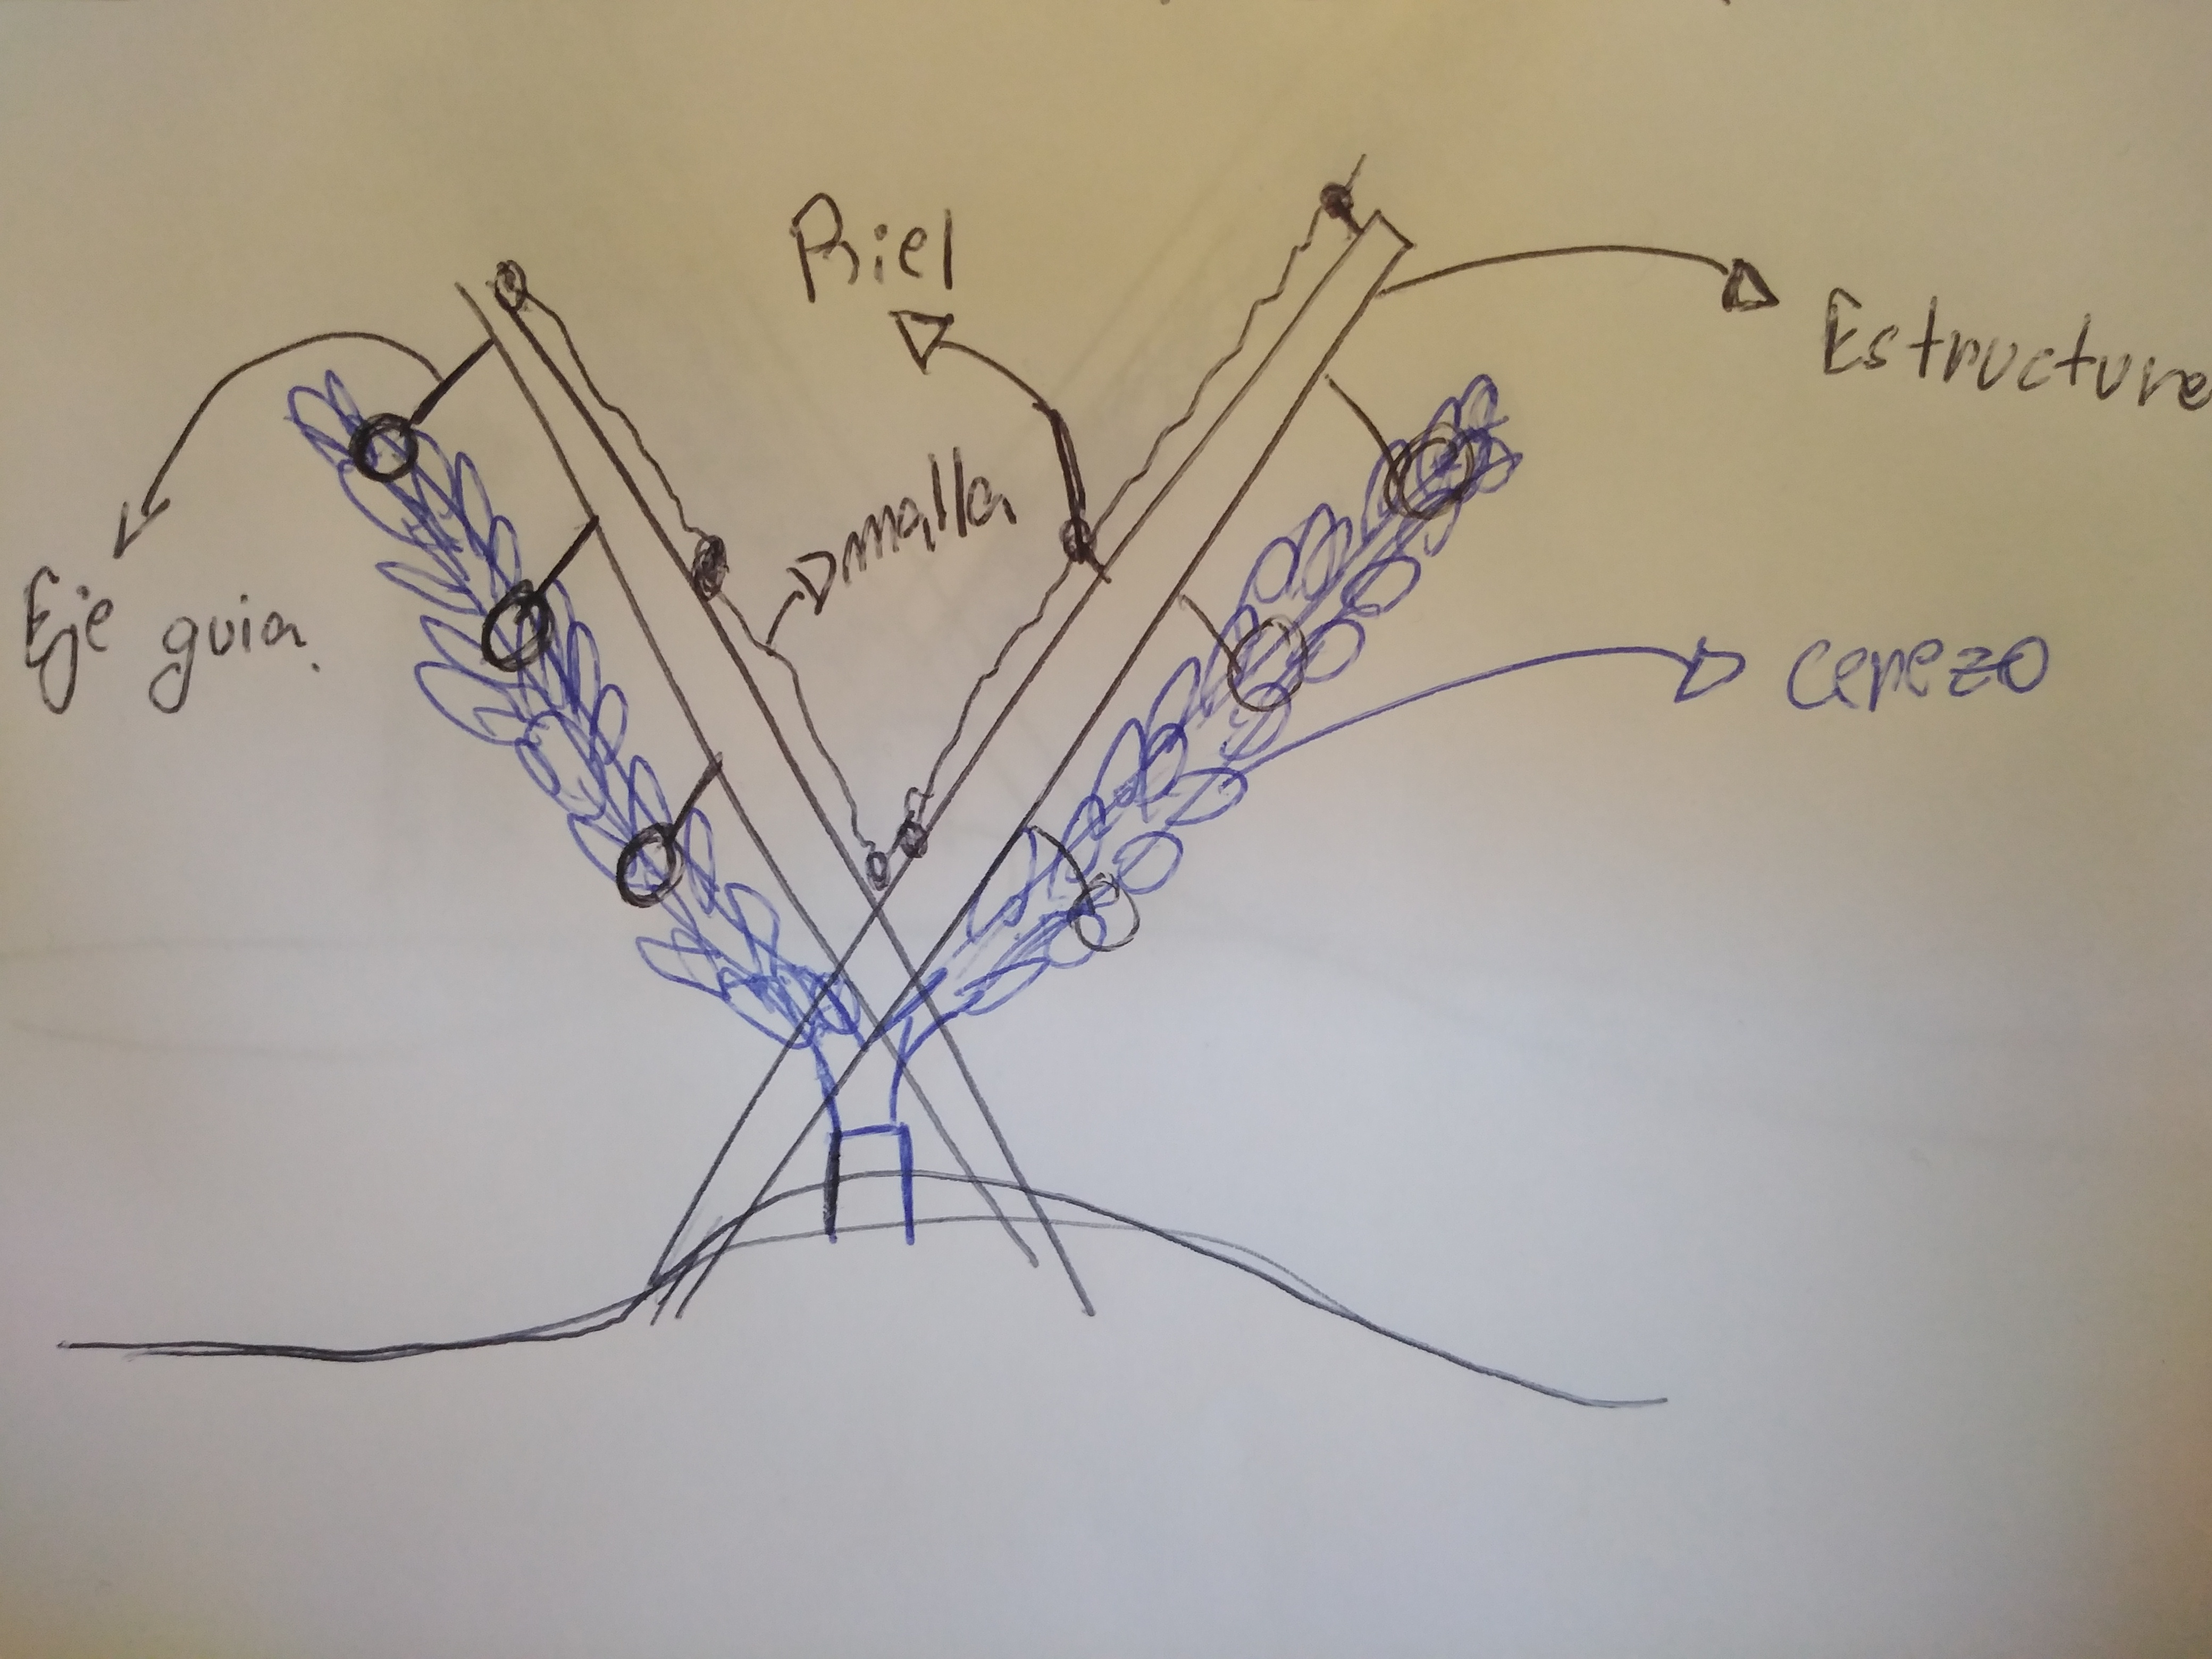 Riel
Estructure
malla
Eje guia.
cerezo